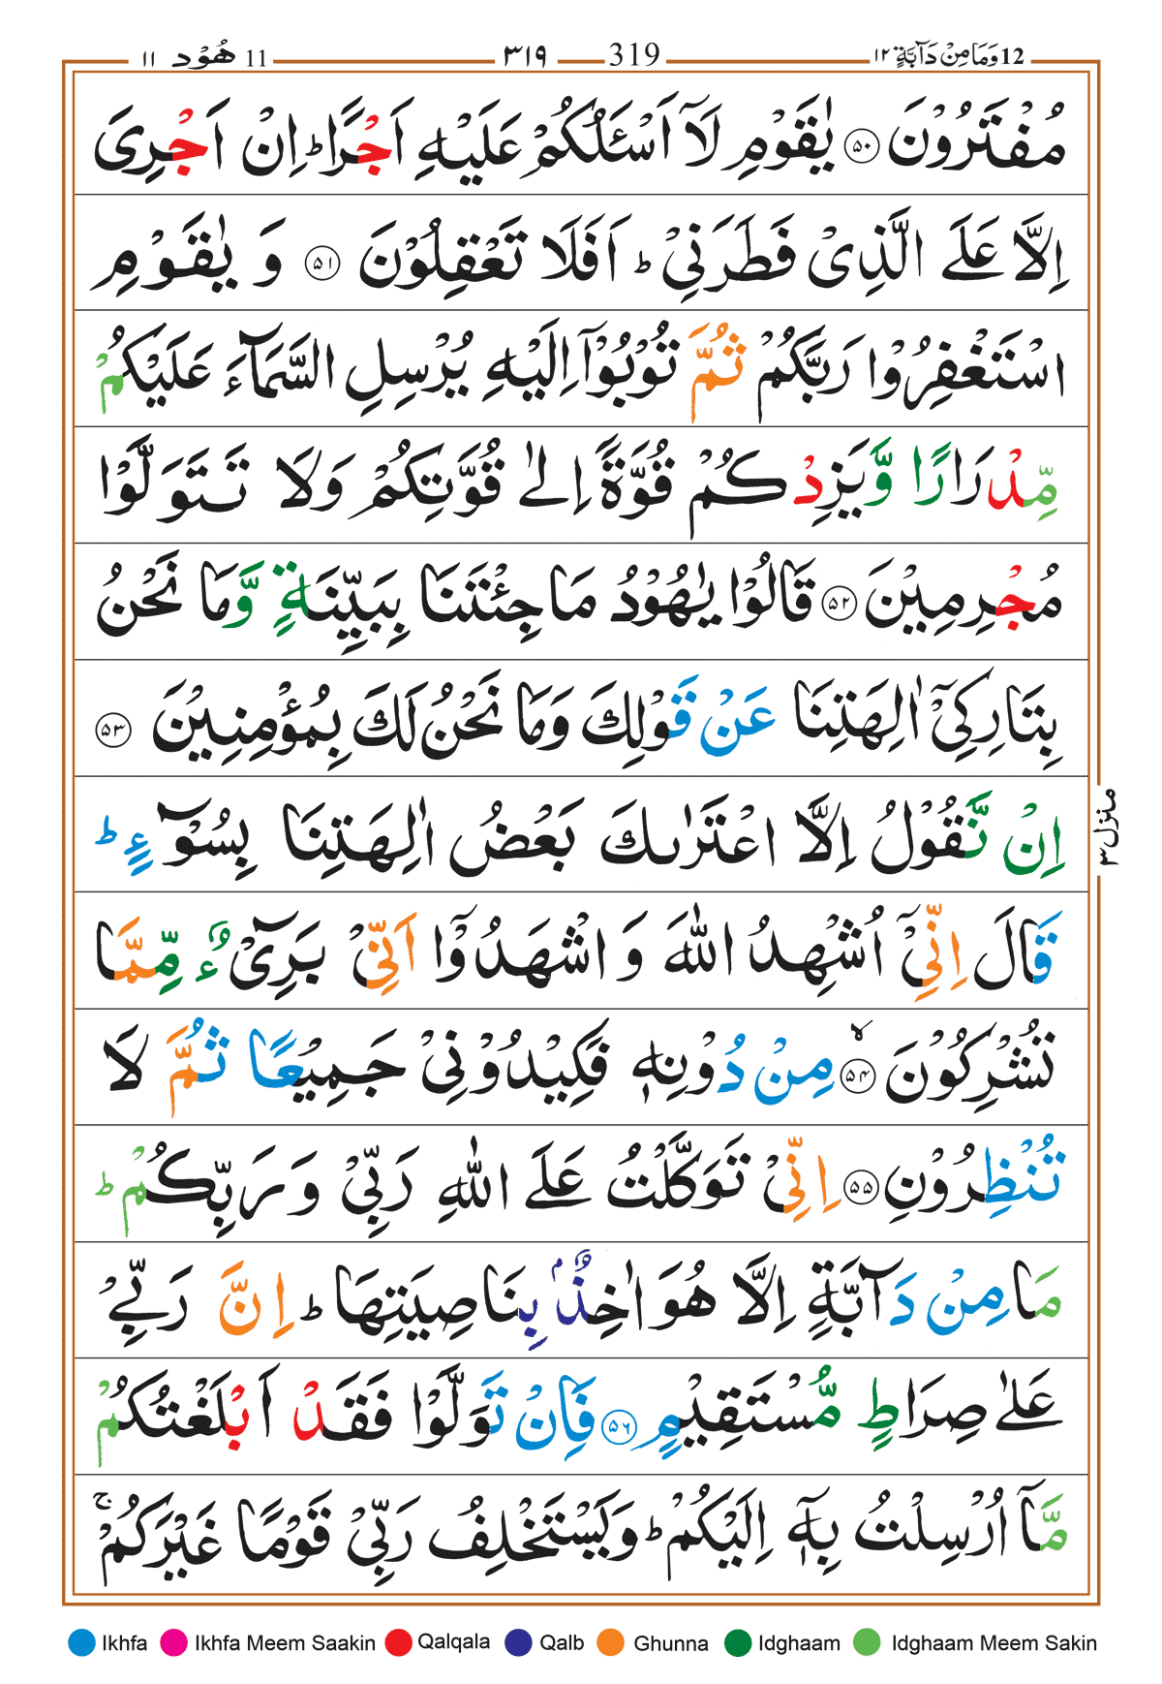 12 وَمَا مِنْ دَآبَّةٍ ١٢ 319 ٣١٩ 11 هُوْد ١١
مُفْتَرُوْنَ ۝۵۰ يٰقَوْمِ لَاۤ اَسْـَٔلُكُمْ عَلَيْهِ اَجْرًا ؕ اِنْ اَجْرِىَ
اِلَّا عَلَى الَّذِىْ فَطَرَنِىْ ؕ اَفَلَا تَعْقِلُوْنَ ۝۵۱ وَ يٰقَوْمِ
اسْتَغْفِرُوْا رَبَّكُمْ ثُمَّ تُوْبُوْۤا اِلَيْهِ يُرْسِلِ السَّمَآءَ عَلَيْكُمْ
مِّدْرَارًا وَّيَزِدْكُمْ قُوَّةً اِلٰى قُوَّتِكُمْ وَلَا تَتَوَلَّوْا
مُجْرِمِيْنَ ۝۵۲ قَالُوْا يٰهُوْدُ مَا جِئْتَنَا بِبَيِّنَةٍ وَّمَا نَحْنُ
بِتَارِكِىْۤ اٰلِهَتِنَا عَنْ قَوْلِكَ وَمَا نَحْنُ لَكَ بِمُؤْمِنِيْنَ ۝۵۳
اِنْ نَّقُوْلُ اِلَّا اعْتَرٰٮكَ بَعْضُ اٰلِهَتِنَا بِسُوْٓءٍ ؕ
قَالَ اِنِّىْۤ اُشْهِدُ اللّٰهَ وَ اشْهَدُوْۤا اَنِّىْ بَرِىْٓءٌ مِّمَّا
تُشْرِكُوْنَ ۙ‏ ۝۵۴ مِنْ دُوْنِهٖ فَكِيْدُوْنِىْ جَمِيْعًا ثُمَّ لَا
تُنْظِرُوْنِ ۝۵۵ اِنِّىْ تَوَكَّلْتُ عَلَى اللّٰهِ رَبِّىْ وَ رَبِّكُمْ ؕ
مَا مِنْ دَآبَّةٍ اِلَّا هُوَ اٰخِذٌۢ بِنَاصِيَتِهَا ؕ اِنَّ رَبِّىْ
عَلٰى صِرَاطٍ مُّسْتَقِيْمٍ ۝۵۶ فَاِنْ تَوَلَّوْا فَقَدْ اَبْلَغْتُكُمْ
مَّاۤ اُرْسِلْتُ بِهٖۤ اِلَيْكُمْ ؕ وَيَسْتَخْلِفُ رَبِّىْ قَوْمًا غَيْرَكُمْ ۚ
منزل ٣
Ikhfa Ikhfa Meem Saakin Qalqala Qalb Ghunna Idghaam Idghaam Meem Sakin